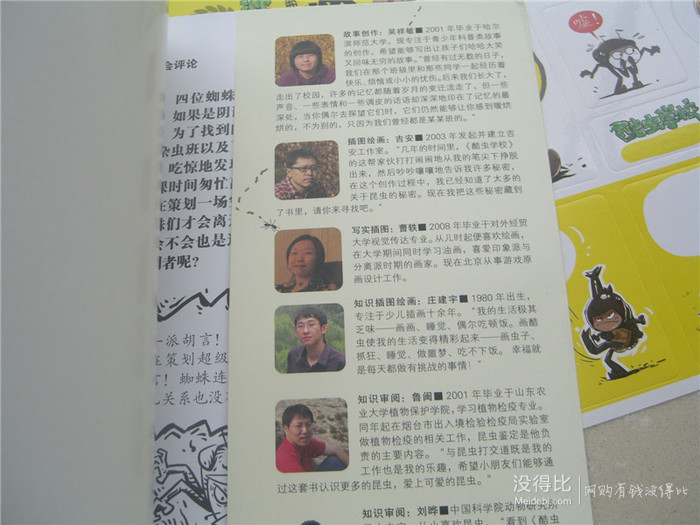 会评论
四位蜘蛛
如果是阴谋
为了找到
杂虫班以及
吃惊地发现
课时间匆忙
在策划一场
妹们才会离
会不会也是
者呢？
一派胡言！
在策划超级
言！蜘蛛连
关系也没
故事创作：吴祥敏■ 2001 年毕业于哈尔
滨师范大学。现专注于青少年科普类故事
的创作，希望能够写出让孩子们哈哈大笑
又回味无穷的故事。“曾经有过无数的日子，
我们在那个班级里和那些同学一起经历着
快乐、烦恼或小小的忧伤。后来我们长大了，
走出了校园，许多的记忆都随着岁月的变迁流走了，但一些
声音、一些表情和一些调皮的话语却深深地印在了记忆的最
深处，当你偶尔去探望它们时，它们仍然能够让你感到暖烘
烘的，不为别的，只因为我们曾经都是某某班的。”
插图绘画：吉安■ 2003 年发起并建立吉
安工作室。“几年的时间里，《酷虫学校》
的这帮家伙打打闹闹地从我的笔尖下挣脱
出来，然后吵吵嚷嚷地告诉我许多秘密，
在这个创作过程中，我已经知道了太多的
关于昆虫的秘密。现在我把这些秘密藏到
了书里，请你来寻找吧。”
写实插图：曹轶■ 2008 年毕业于对外经贸
大学视觉传达专业。从儿时起便喜欢绘画，
在大学期间同时学习油画，喜爱印象派与
分离派时期的画家。现在北京从事游戏原
画设计工作。
知识插图绘画：庄建宇■ 1980 年出生，
专注于少儿插画十余年。“我的生活极其
乏味——画画、睡觉、偶尔吃顿饭。画酷
虫使我的生活变得精彩起来——画虫子、
抓狂、睡觉、做噩梦、吃不下饭。 幸福就
是每天都做有挑战的事情！”
知识审阅：鲁闽■ 2001 年毕业于山东农
业大学植物保护学院，学习植物检疫专业。
同年起在烟台市出入境检验检疫局实验室
做植物检疫的相关工作，昆虫鉴定是他负
责的主要内容。 “与昆虫打交道既是我的
工作也是我的乐趣，希望小朋友们能够通
过这套书认识更多的昆虫，爱上可爱的昆虫。
知识审阅：刘晔■中国科学院动物研究所
嘘！
酷虫学校
没得比
Meidebi.com
网购有钱没得比